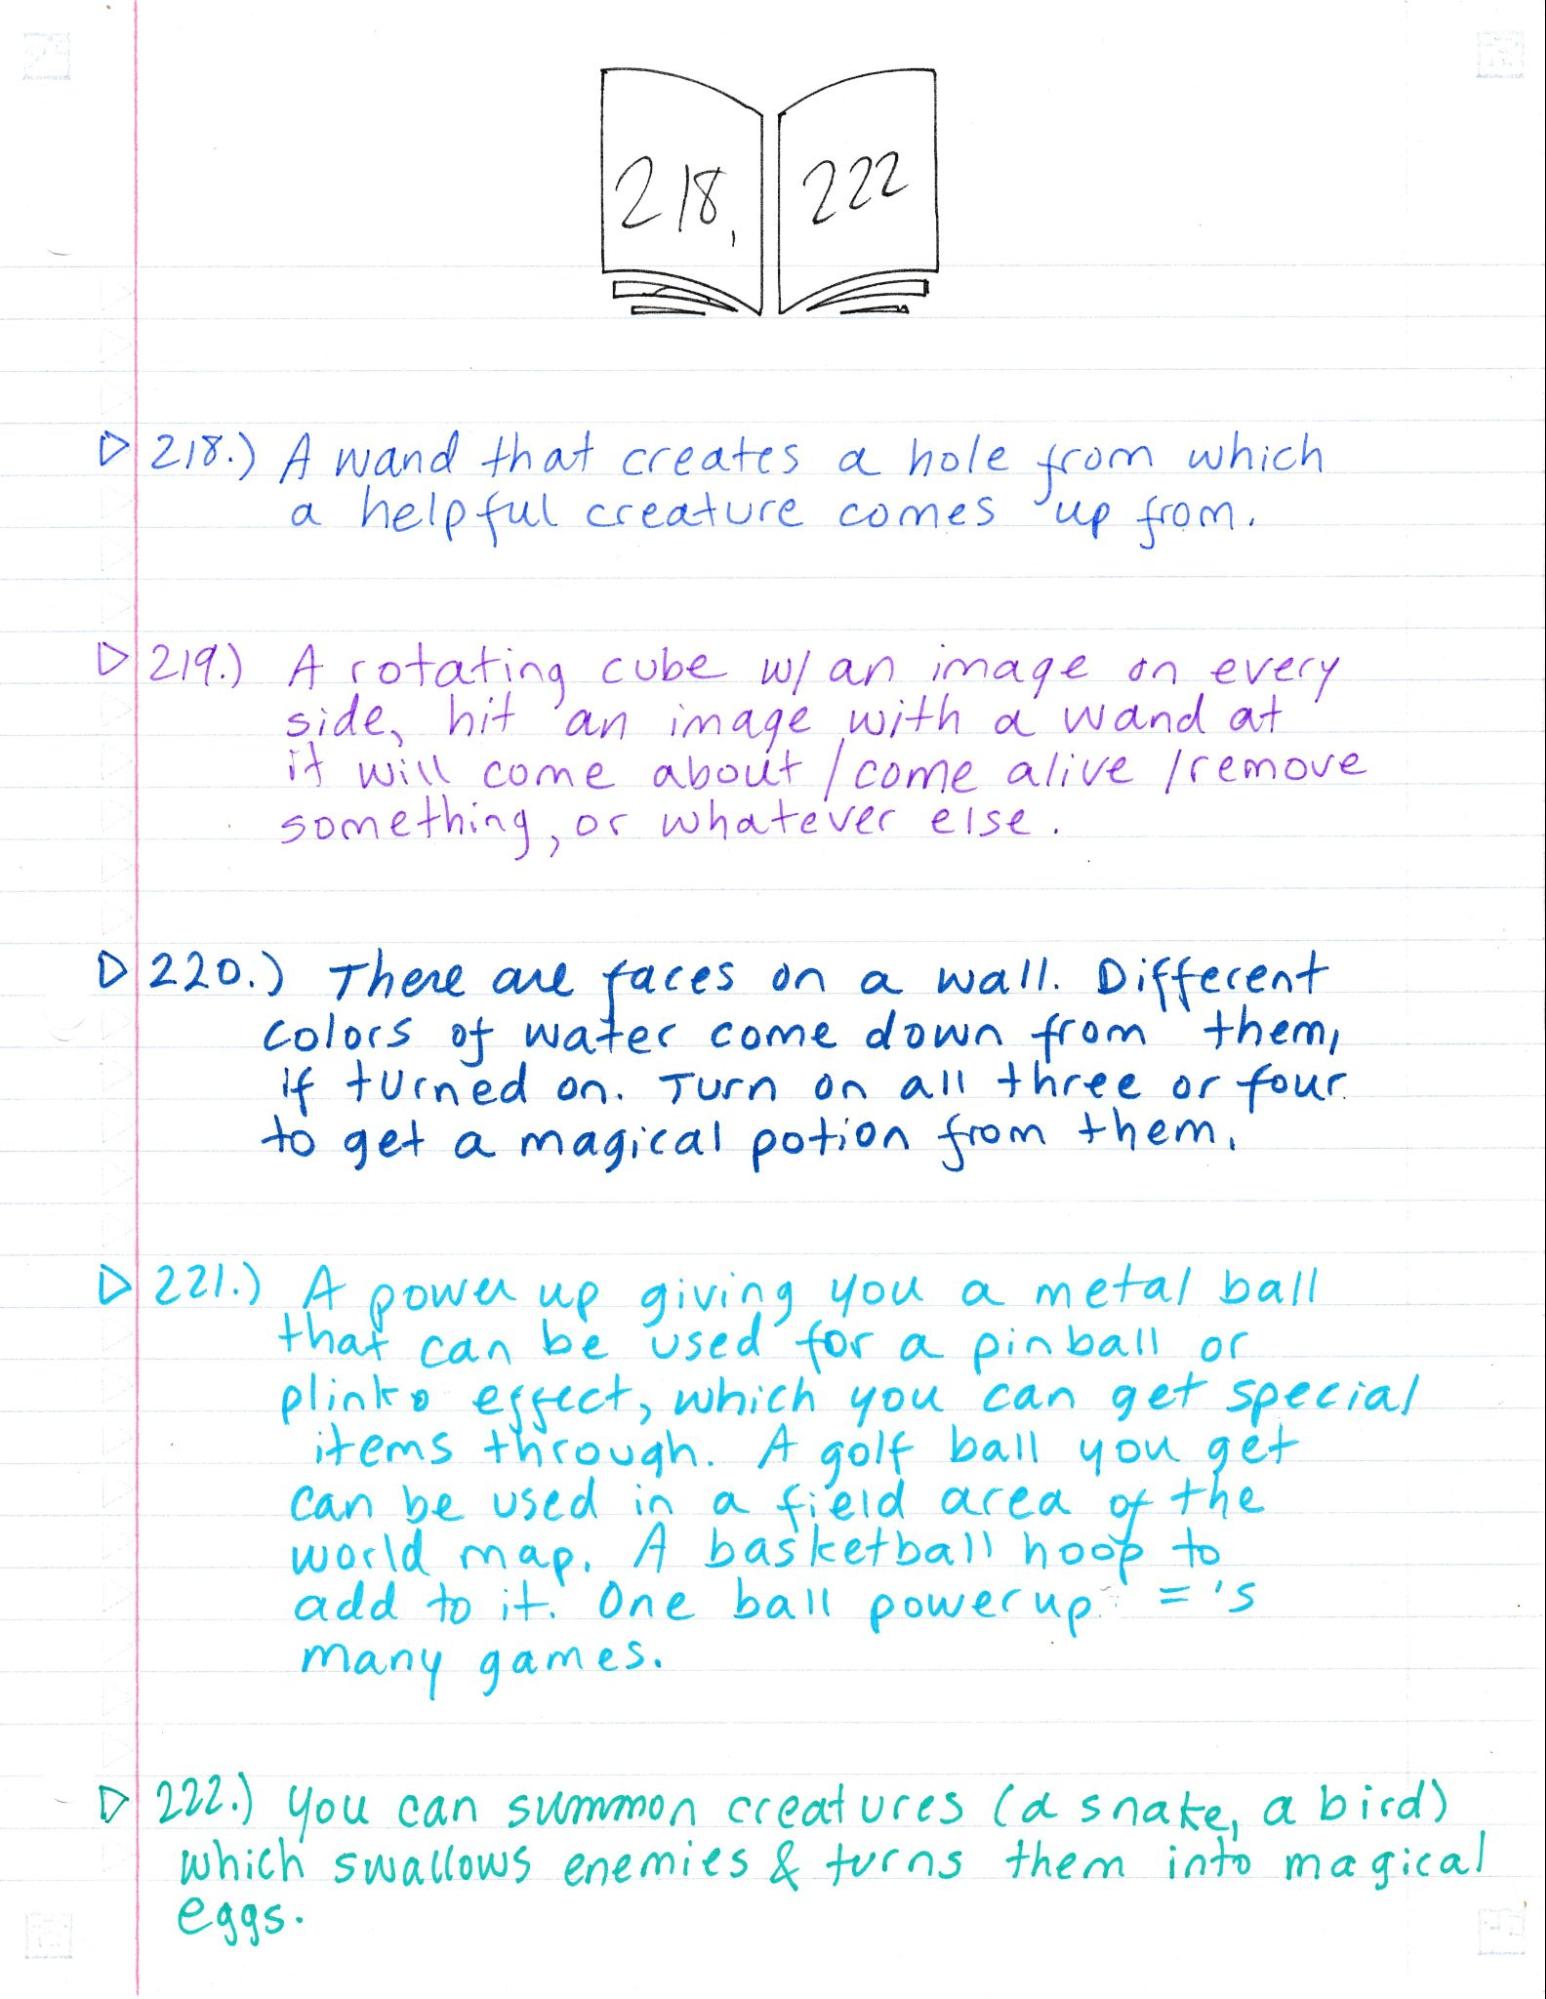 218, 222
218.) A wand that creates a hole from which
a helpful creature comes up from.
219.) A rotating cube w/ an image on every
side, hit an image with a wand at
it will come about / come alive / remove
something, or whatever else.
220.) There are faces on a wall. Different
colors of water come down from them,
if turned on. Turn on all three or four
to get a magical potion from them.
221.) A power up giving you a metal ball
that can be used for a pinball or
plinko effect, which you can get special
items through. A golf ball you get
can be used in a field area of the
world map. A basketball hoop to
add to it. One ball powerup ='s
many games.
222.) You can summon creatures (a snake, a bird)
which swallows enemies & turns them into magical
eggs.